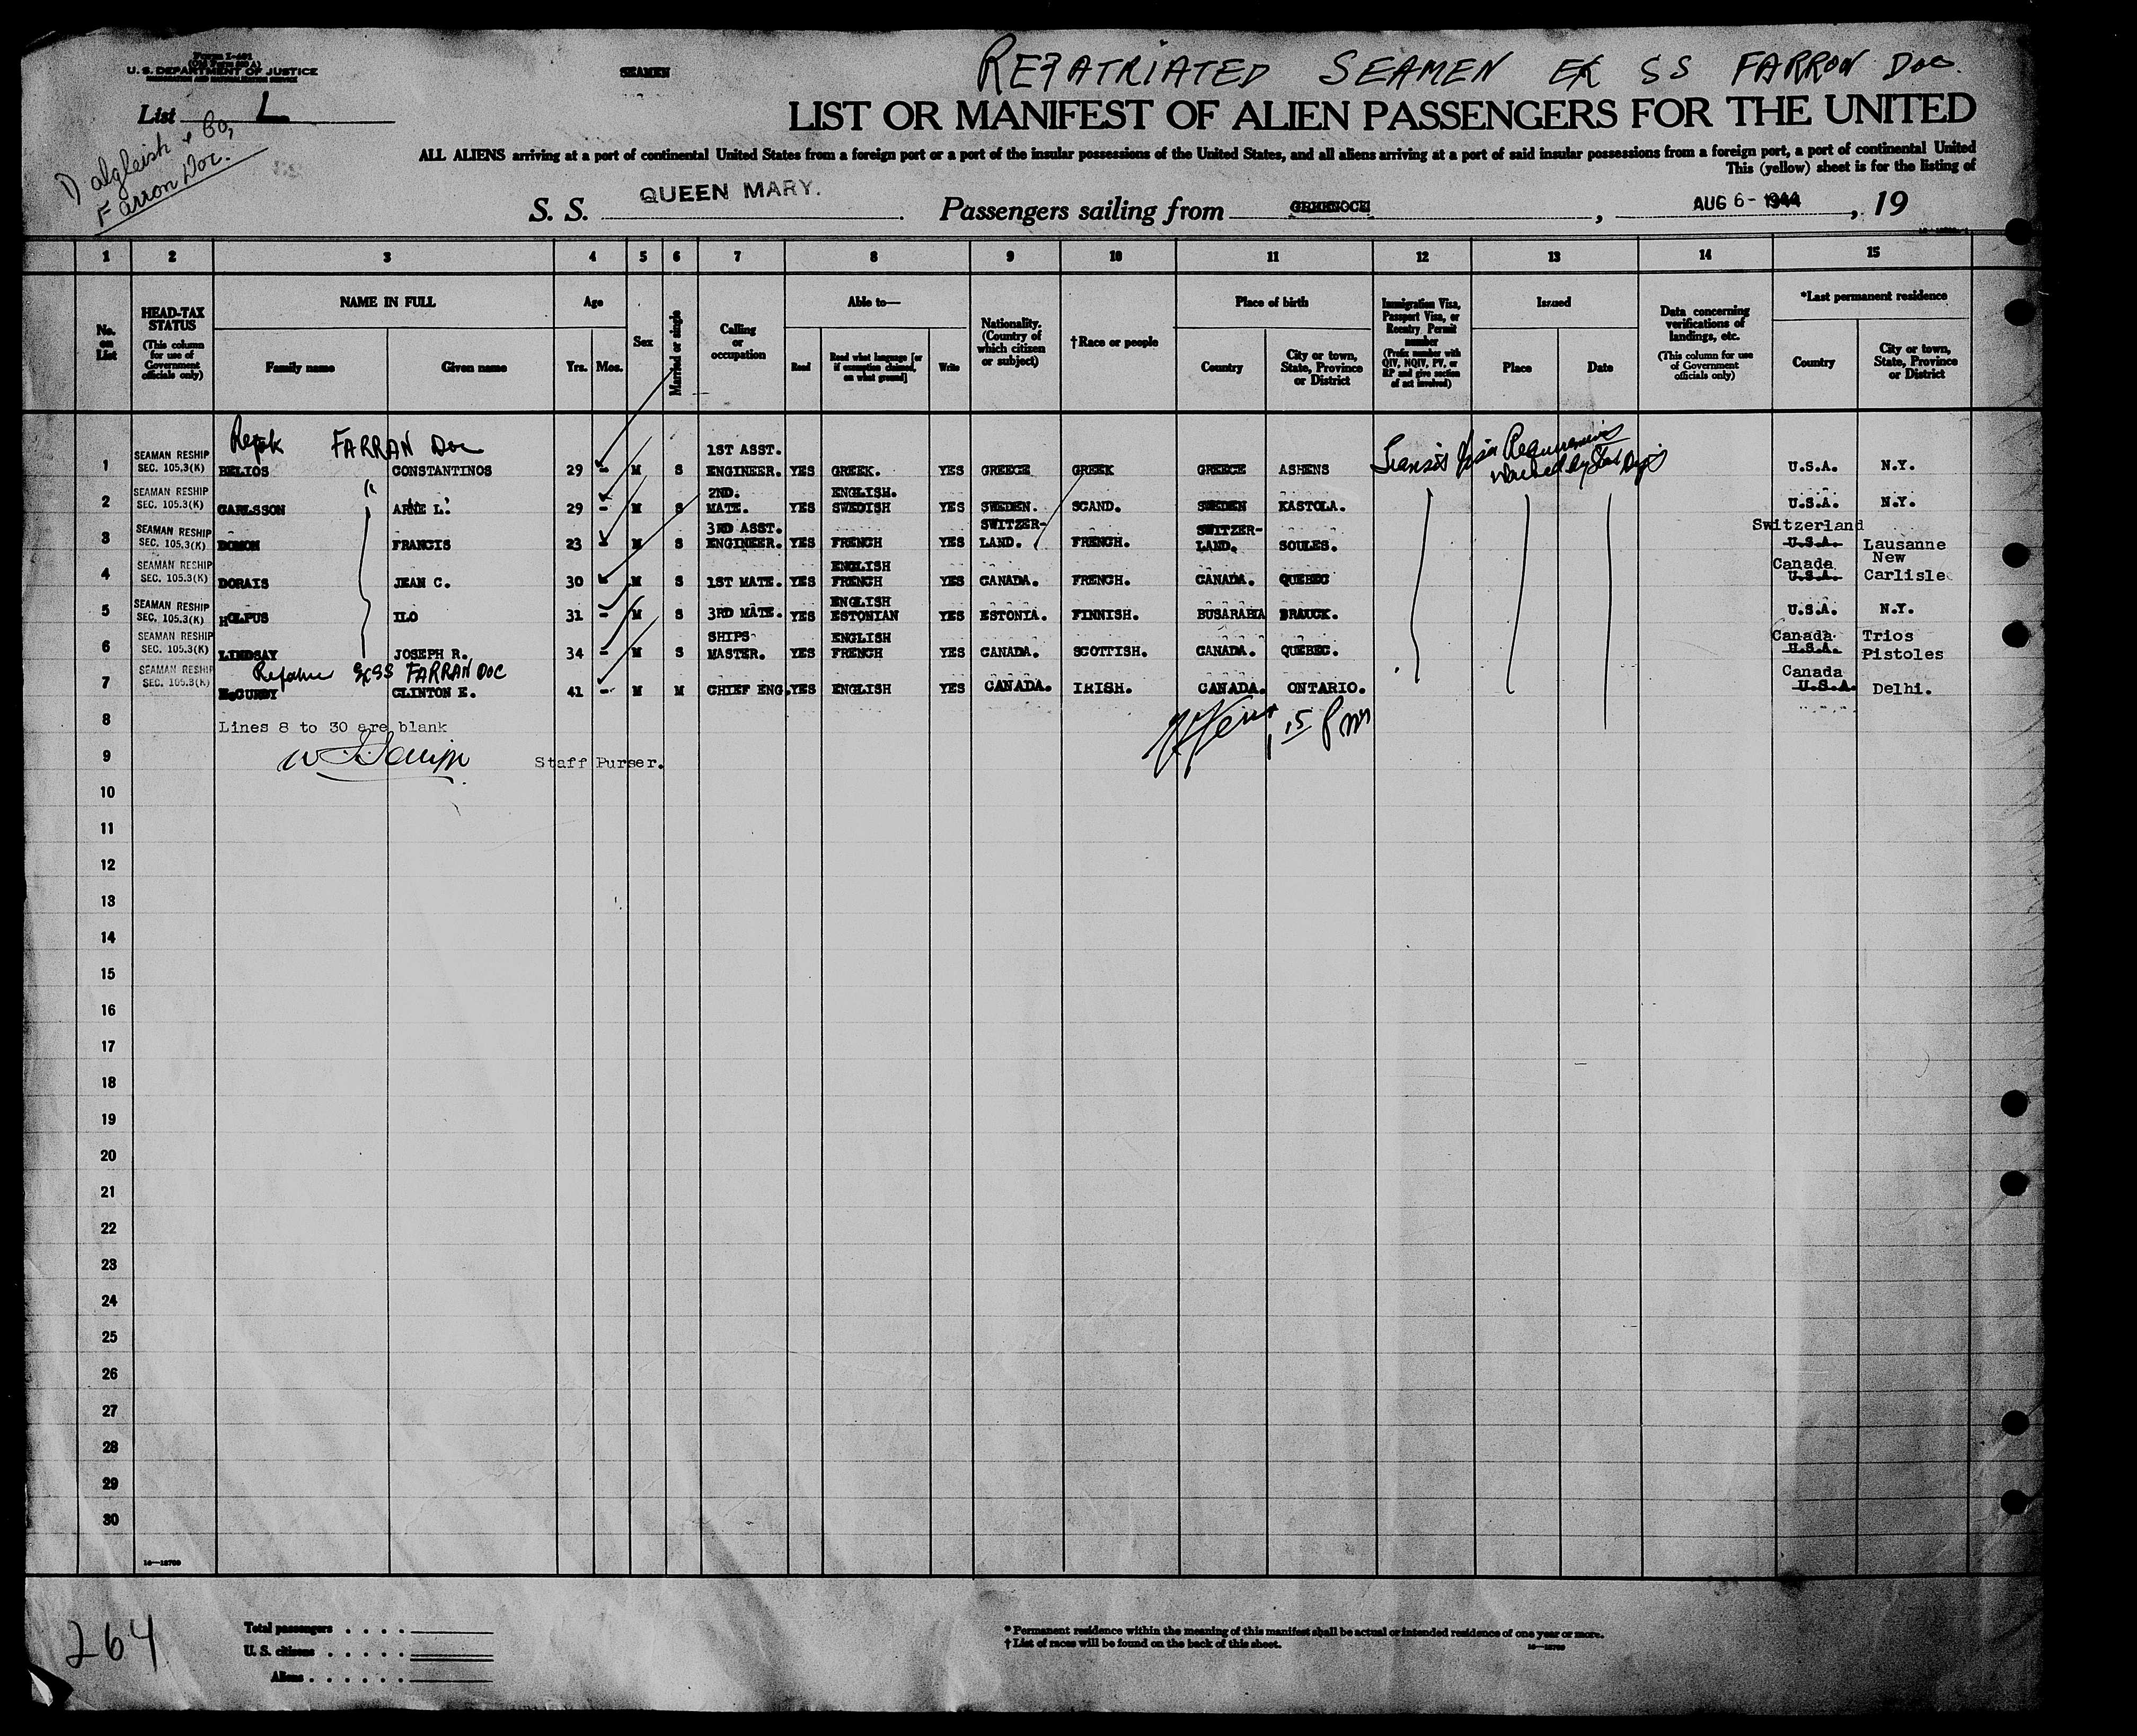 U. S. DEPARTMENT OF JUSTICE
SEAMEN
REPATRIATED SEAMEN EX SS FARRON DOC.
List L
Dalgleish & Co,
Farron Doc.
LIST OR MANIFEST OF ALIEN PASSENGERS FOR THE UNITED
ALL ALIENS arriving at a port of continental United States from a foreign port or a port of the insular possessions of the United States, and all aliens arriving at a port of said insular possessions from a foreign port, a port of continental United
This (yellow) sheet is for the listing of
S. S. QUEEN MARY. Passengers sailing from GREENOCK, AUG 6 - 1944, 19
1 2 3 4 5 6 7 8 9 10 11 12 13 14 15
No. on List
HEAD-TAX STATUS (This column for use of Government officials only)
NAME IN FULL Family name Given name
Age Yrs. Mos.
Sex
Married or single
Calling or occupation
Able to— Read Read what language [or if exemption claimed, on what ground] Write
Nationality. (Country of which citizen or subject)
†Race or people
Place of birth Country City or town, State, Province or District
Immigration Visa, Passport Visa, or Reentry Permit number (Prefix number with QIV, NQIV, PV, or RP and give section of act involved)
Issued Place Date
Data concerning verifications of landings, etc. (This column for use of Government officials only)
*Last permanent residence Country City or town, State, Province or District
FARRAN DOC
Transit Visa Requirements
1 SEAMAN RESHIP SEC. 105.3(K) BELIOS CONSTANTINOS 29 - M S 1ST ASST. ENGINEER. YES GREEK. YES GREECE GREEK GREECE ASHENS U.S.A. N.Y.
2 SEAMAN RESHIP SEC. 105.3(K) CARLSSON " ARNE L. 29 - M S 2ND. MATE. YES ENGLISH. SWEDISH YES SWEDEN. SCAND. SWEDEN KASTOLA. U.S.A. N.Y.
3 SEAMAN RESHIP SEC. 105.3(K) FRANCIS 23 - M S 3RD ASST. ENGINEER. YES FRENCH YES SWITZER-LAND. FRENCH. SWITZER-LAND. SOULES. Switzerland U.S.A. Lausanne
4 SEAMAN RESHIP SEC. 105.3(K) DORAIS JEAN C. 30 - M S 1ST MATE. YES ENGLISH FRENCH YES CANADA. FRENCH. CANADA. QUEBEC Canada U.S.A. New Carlisle
5 SEAMAN RESHIP SEC. 105.3(K) HOLPUS ILO 31 - M S 3RD MATE. YES ENGLISH ESTONIAN YES ESTONIA. FINNISH. BUSARABIA BRAUCK. U.S.A. N.Y.
6 SEAMAN RESHIP SEC. 105.3(K) LINDSAY JOSEPH R. 34 - M S SHIPS MASTER. YES ENGLISH FRENCH YES CANADA. SCOTTISH. CANADA. QUEBEC. Canada U.S.A. Trios Pistoles
Ex SS FARRAN DOC
7 SEAMAN RESHIP SEC. 105.3(K) McCURDY CLINTON E. 41 - M M CHIEF ENG. YES ENGLISH YES CANADA. IRISH. CANADA. ONTARIO. Canada U.S.A. Delhi.
8 Lines 8 to 30 are blank
9 Staff Purser.
10
11
12
13
14
15
16
17
18
19
20
21
22
23
24
25
26
27
28
29
30
16—18700
264
Total passengers . . . .
U. S. citizens . . . . .
Aliens . . . . . .
* Permanent residence within the meaning of this manifest shall be actual or intended residence of one year or more.
† List of races will be found on the back of this sheet.